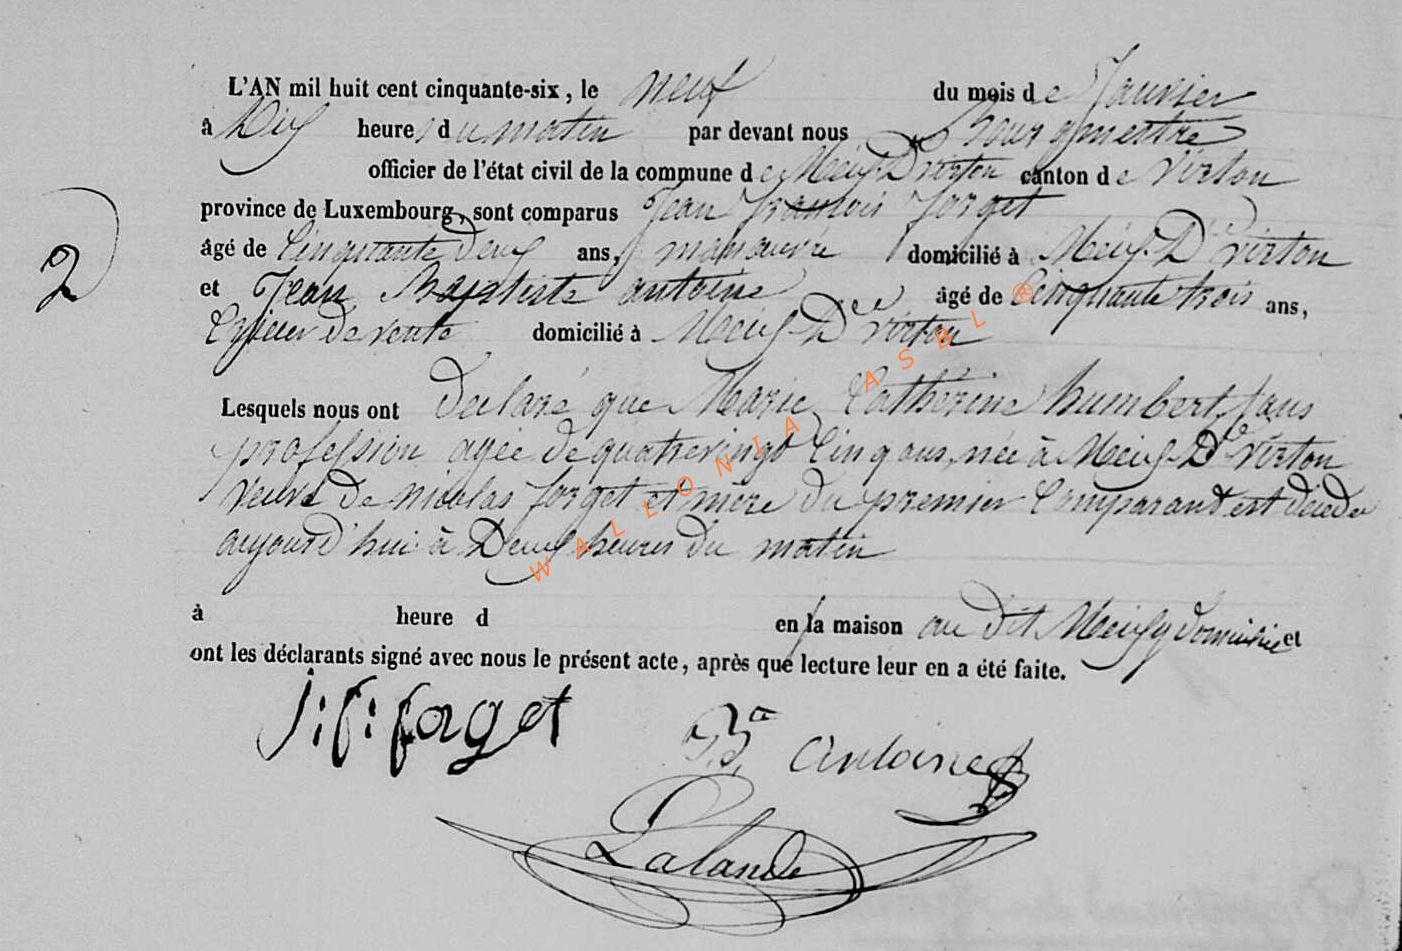 L'AN mil huit cent cinquante-six, le neuf du mois de Janvier
à Dix heures du matin par devant nous Bourgmestre
officier de l'état civil de la commune de Meix-Dt virton canton de Virton
province de Luxembourg, sont comparus Jean francois forget
âgé de Cinquante Deux ans, manouvre domicilié à Meix-Dt virton
2
et Jean Baptiste antoine âgé de Cinquante trois ans,
Crieur de vente domicilié à Meix-Dt virton
Lesquels nous ont Declaré que Marie Catherine humbert, sans
profession agée de quatrevingt Cinq ans, née à Meix Dt Virton
veuve de nicolas forget et mère du premier Comparant est décédée
aujourd'hui à Deux heures du matin
à heure d en sa maison au dit Meix y domiciliée et
ont les déclarants signé avec nous le présent acte, après que lecture leur en a été faite.
j: f: forget
J. Bte Antoine
Lalande
WALLONIA ASBL ®